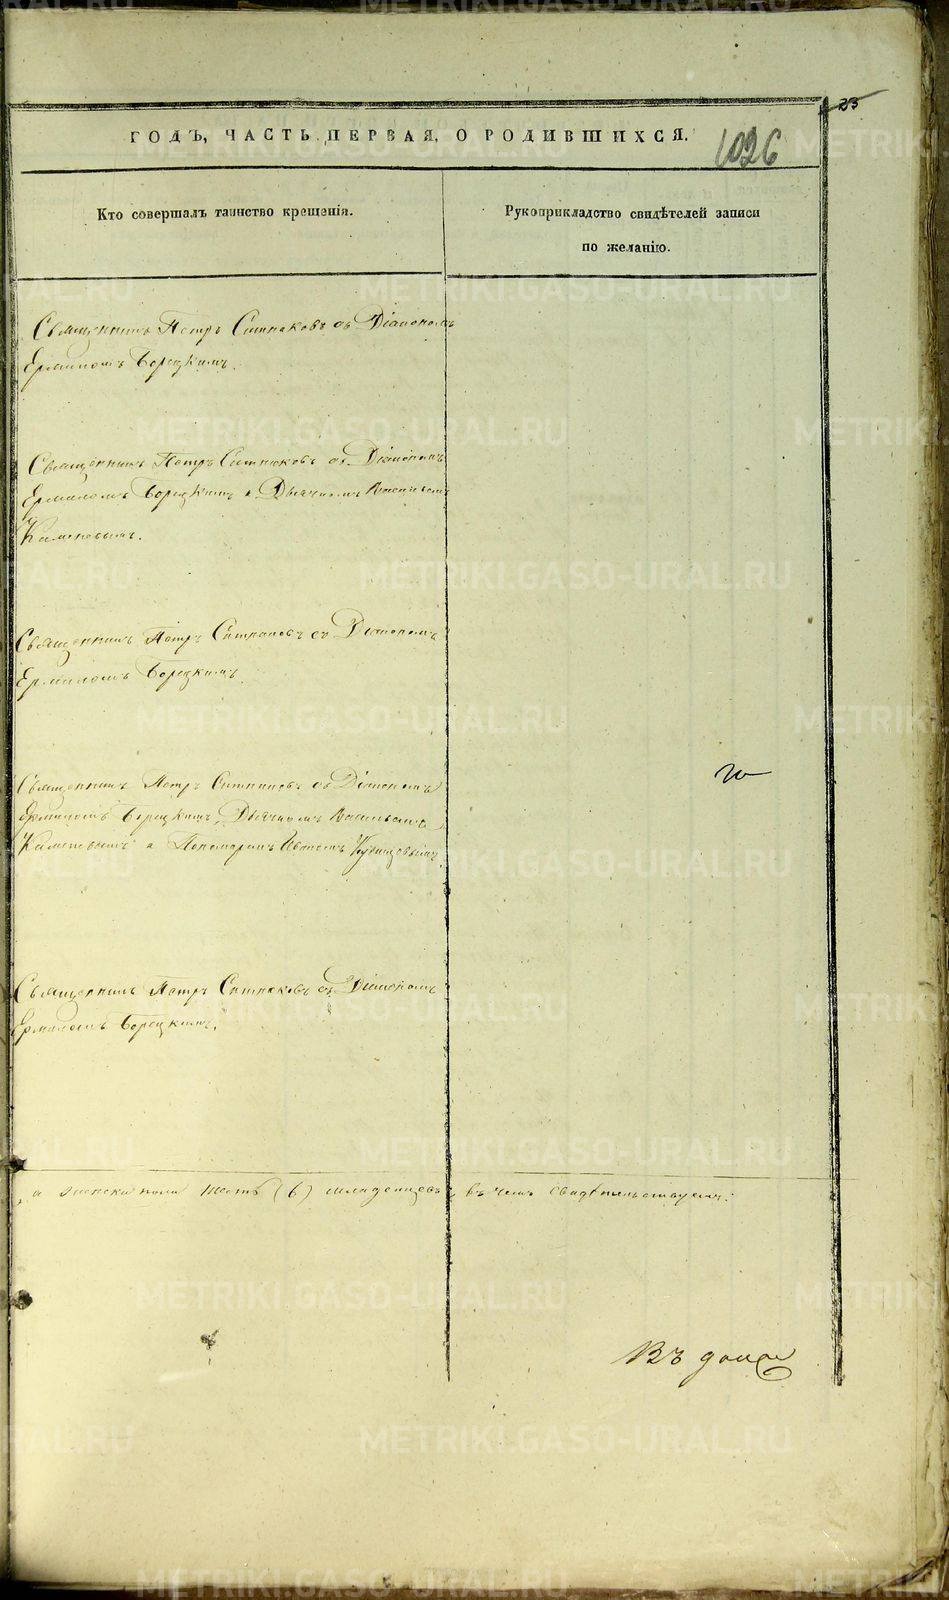 23
ГОДЪ, ЧАСТЬ ПЕРВАЯ, О РОДИВШИХСЯ.
1026
Кто совершалъ таинство крещенія.
Рукоприкладство свидѣтелей записи
по желанію.
Священникъ Петръ Ситниковъ съ Діакономъ
Ермиломъ Борецкимъ.
Священникъ Петръ Ситниковъ съ Діакономъ
Ермиломъ Борецкимъ и Дьячкомъ Васильемъ
Каменевымъ.
Священникъ Петръ Ситниковъ съ Діакономъ
Ермиломъ Борецкимъ.
Священникъ Петръ Ситниковъ съ Діакономъ
Ермиломъ Борецкимъ, Дьячкомъ Васильемъ
Каменевымъ и Пономаремъ Иваномъ Кузнецовымъ.
Священникъ Петръ Ситниковъ съ Діакономъ
Ермиломъ Борецкимъ.
а женска пола шесть (6) младенцевъ, въ чемъ свидѣтельствуемъ:
METRIKI.GASO-URAL.RU